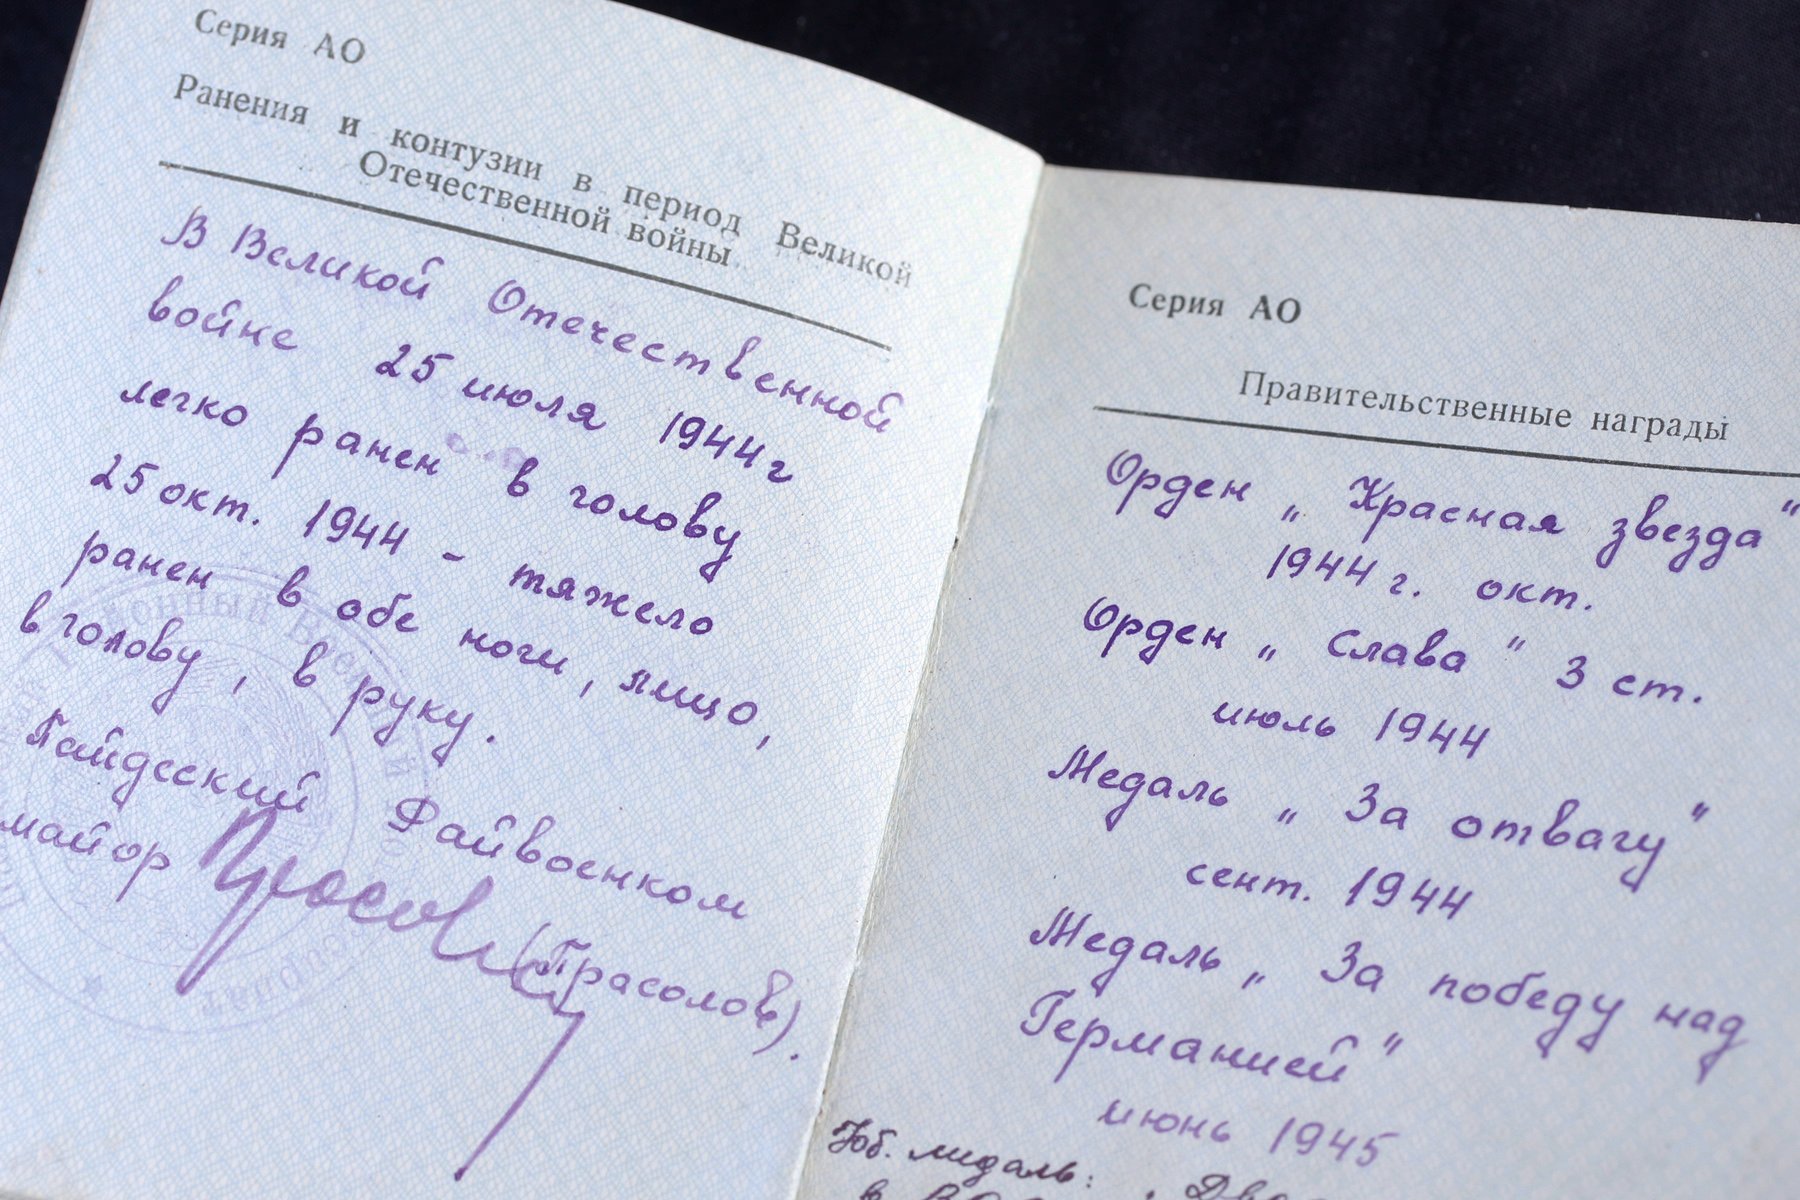 Серия АО
Ранения и контузии в период Великой
Отечественной войны
В Великой Отечественной
войне 25 июля 1944г
легко ранен в голову
25 окт. 1944 - тяжело
ранен в обе ноги, лицо,
в голову, в руку.
Гайдеский Райвоенком
майор
(Прасолов).
Серия АО
Правительственные награды
Орден „Красная звезда"
1944 г. окт.
Орден „Слава" 3 ст.
июль 1944
Медаль „За отвагу"
сент. 1944
Медаль „За победу над
Германией"
июнь 1945
Юб. медаль: